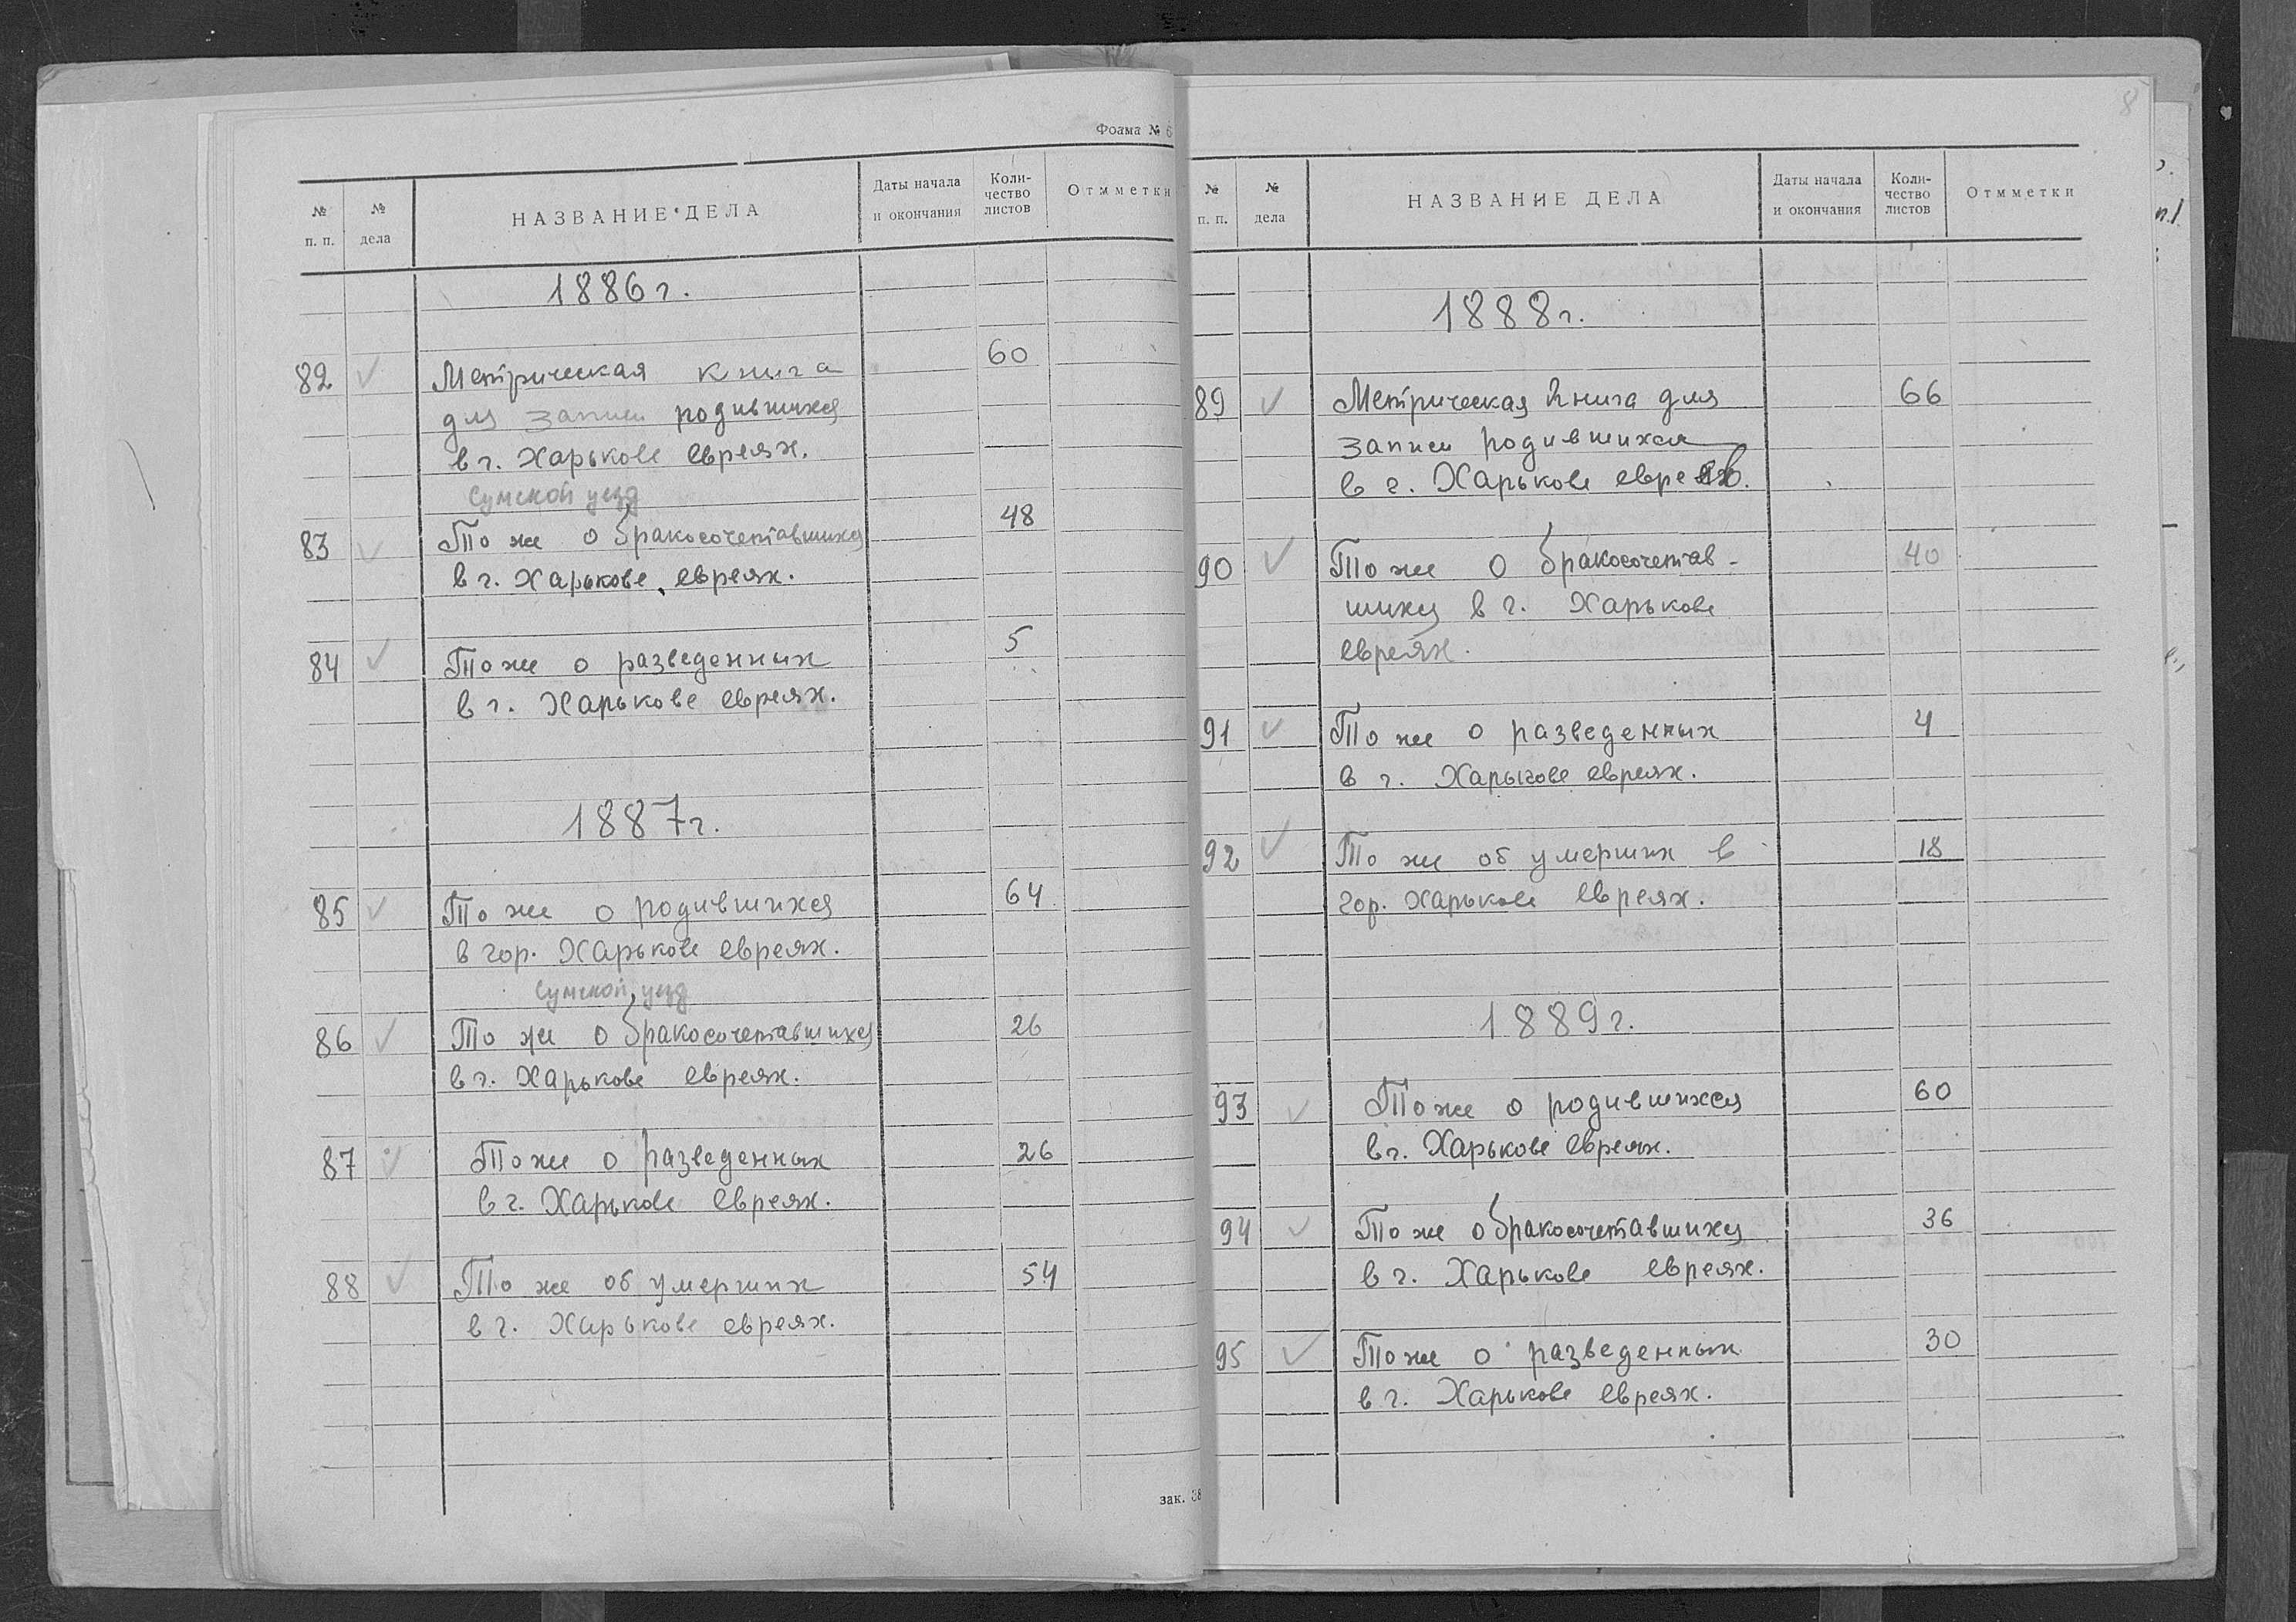 Фоама № 6
№ п. п.
№ дела
НАЗВАНИЕ ДЕЛА
Даты начала и окончания
Коли-
чество
листов
Отмметки
1886 г.
82 ✓ Метрическая книга 60
для записи родившихся
в г. Харькове евреях.
Сумской уезд
83 ✓ То же о бракосочетавшихся 48
в г. Харькове евреях.
84 ✓ То же о разведенных 5
в г. Харькове евреях.
1887 г.
85 ✓ То же о родившихся 64
в гор. Харькове евреях.
Сумской уезд
86 ✓ То же о бракосочетавшихся 26
в г. Харькове евреях.
87 ✓ То же о разведенных 26
в г. Харькове евреях.
88 ✓ То же об умерших 54
в г. Харькове евреях.
зак. 38
8
№ п. п.
№ дела
НАЗВАНИЕ ДЕЛА
Даты начала и окончания
Коли-
чество
листов
Отмметки
1888 г.
89 ✓ Метрическая книга для 66
записи родившихся
в г. Харькове евреев.
90 ✓ То же о бракосочетав- 40
шихся в г. Харькове
евреях.
91 ✓ То же о разведенных 4
в г. Харькове евреях.
92 ✓ То же об умерших в 18
гор. Харькове евреях.
1889 г.
93 ✓ То же о родившихся 60
в г. Харькове евреях.
94 ✓ То же о бракосочетавшихся 36
в г. Харькове евреях.
95 ✓ То же о разведенных 30
в г. Харькове евреях.